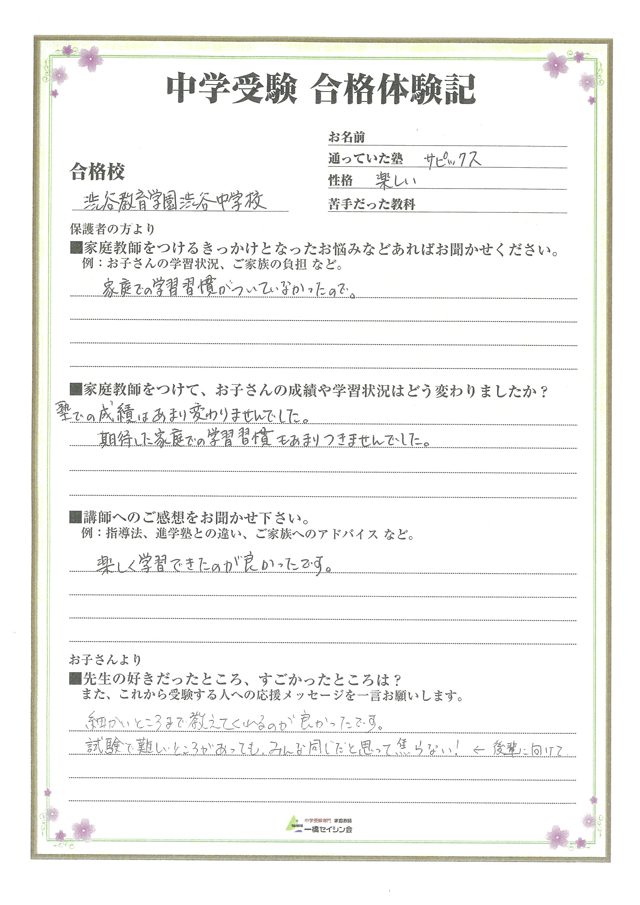 中学受験 合格体験記
お名前
通っていた塾 サピックス
性格 楽しい
苦手だった教科
合格校
渋谷教育学園渋谷中学校
保護者の方より
■家庭教師をつけるきっかけとなったお悩みなどあればお聞かせください。
例:お子さんの学習状況、ご家族の負担 など。
家庭での学習習慣がついていなかったので。
■家庭教師をつけて、お子さんの成績や学習状況はどう変わりましたか?
塾での成績はあまり変わりませんでした。
期待した家庭での学習習慣もあまりつきませんでした。
■講師へのご感想をお聞かせ下さい。
例:指導法、進学塾との違い、ご家族へのアドバイス など。
楽しく学習できたのが良かったです。
お子さんより
■先生の好きだったところ、すごかったところは?
また、これから受験する人への応援メッセージを一言お願いします。
細かいところまで教えてくれるのが良かったです。
試験で難しいところがあっても、みんな同じだと思って焦らない! ← 後輩に向けて
中学受験専門 家庭教師
一橋セイシン会